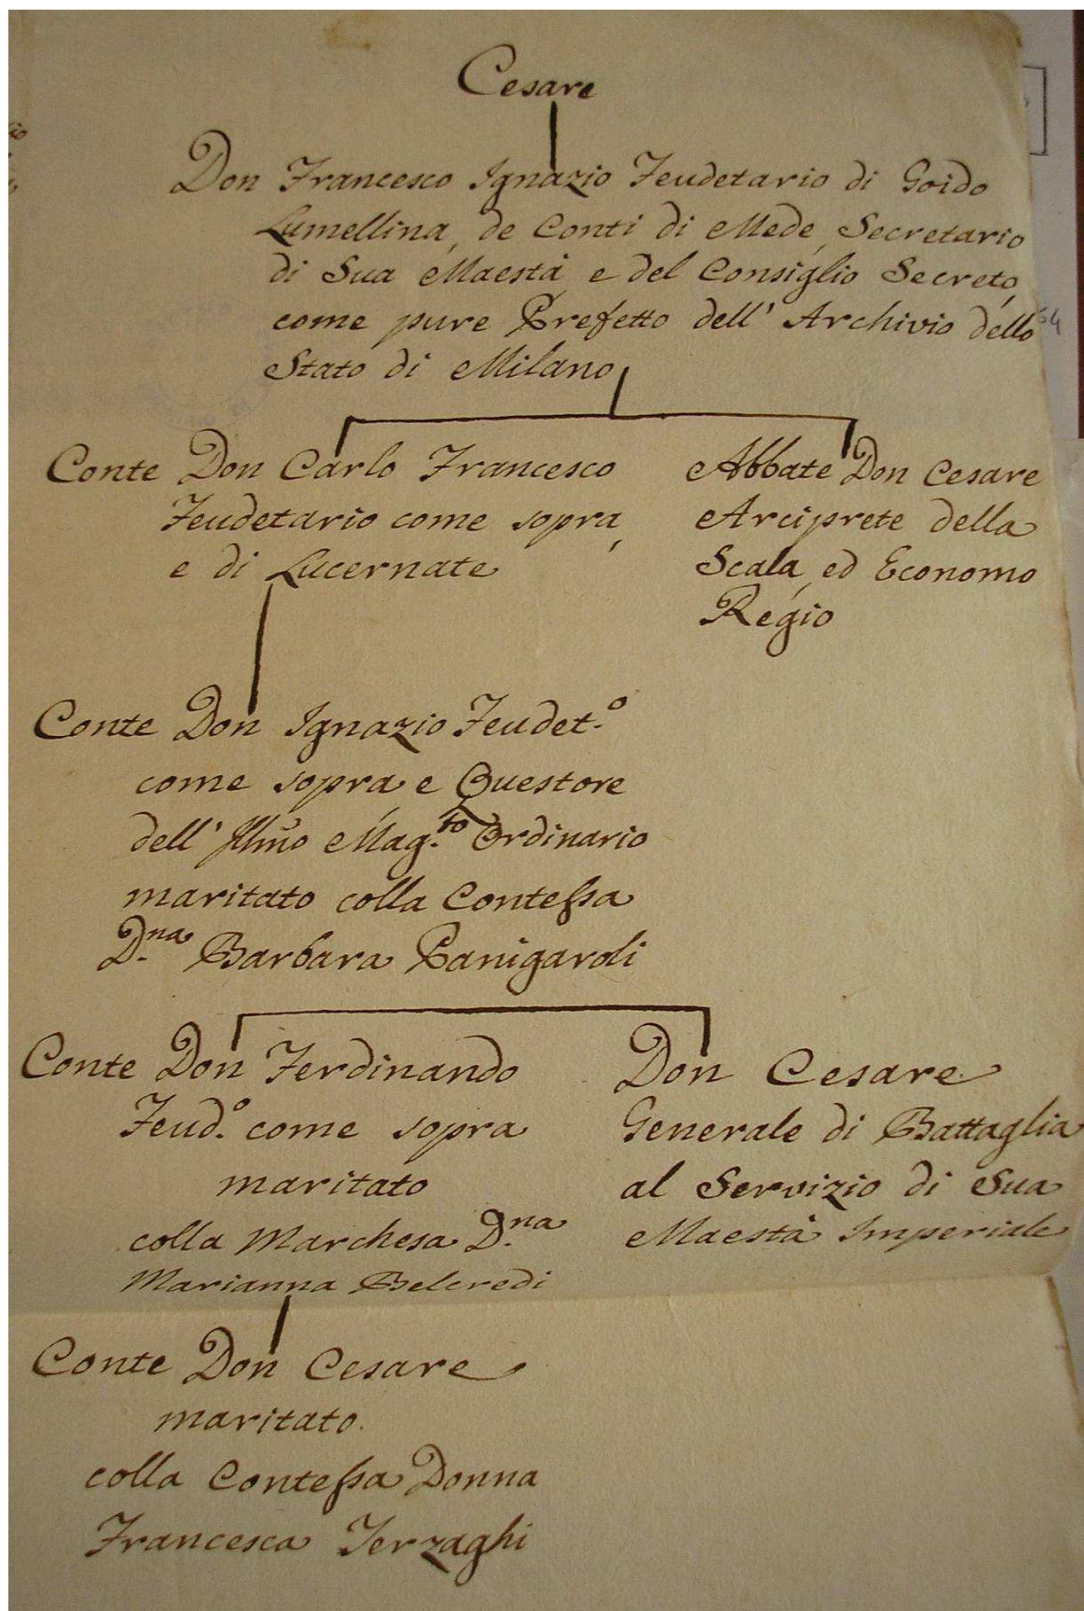 Cesare
Don Francesco Ignazio Feudetario di Goido
Lumellina, de Conti di Mede, Secretario
di Sua Maestà, e del Consiglio Secreto,
come pure Prefetto dell' Archivio dello
Stato di Milano
Conte Don Carlo Francesco
Feudetario come sopra,
e di Lucernate
Abbate Don Cesare
Arciprete della
Scala, ed Economo
Regio
Conte Don Ignazio Feudet.o
come sopra, e Questore
dell' Illm̃o Mag.to Ordinario
maritato colla Contessa
D.na Barbara Panigaroli
Conte Don Ferdinando
Feud.o come sopra
maritato
colla Marchesa D.na
Marianna Belcredi
Don Cesare
Generale di Battaglia
al Servizio di Sua
Maestà Imperiale
Conte Don Cesare
maritato
colla Contessa Donna
Francesca Terzaghi